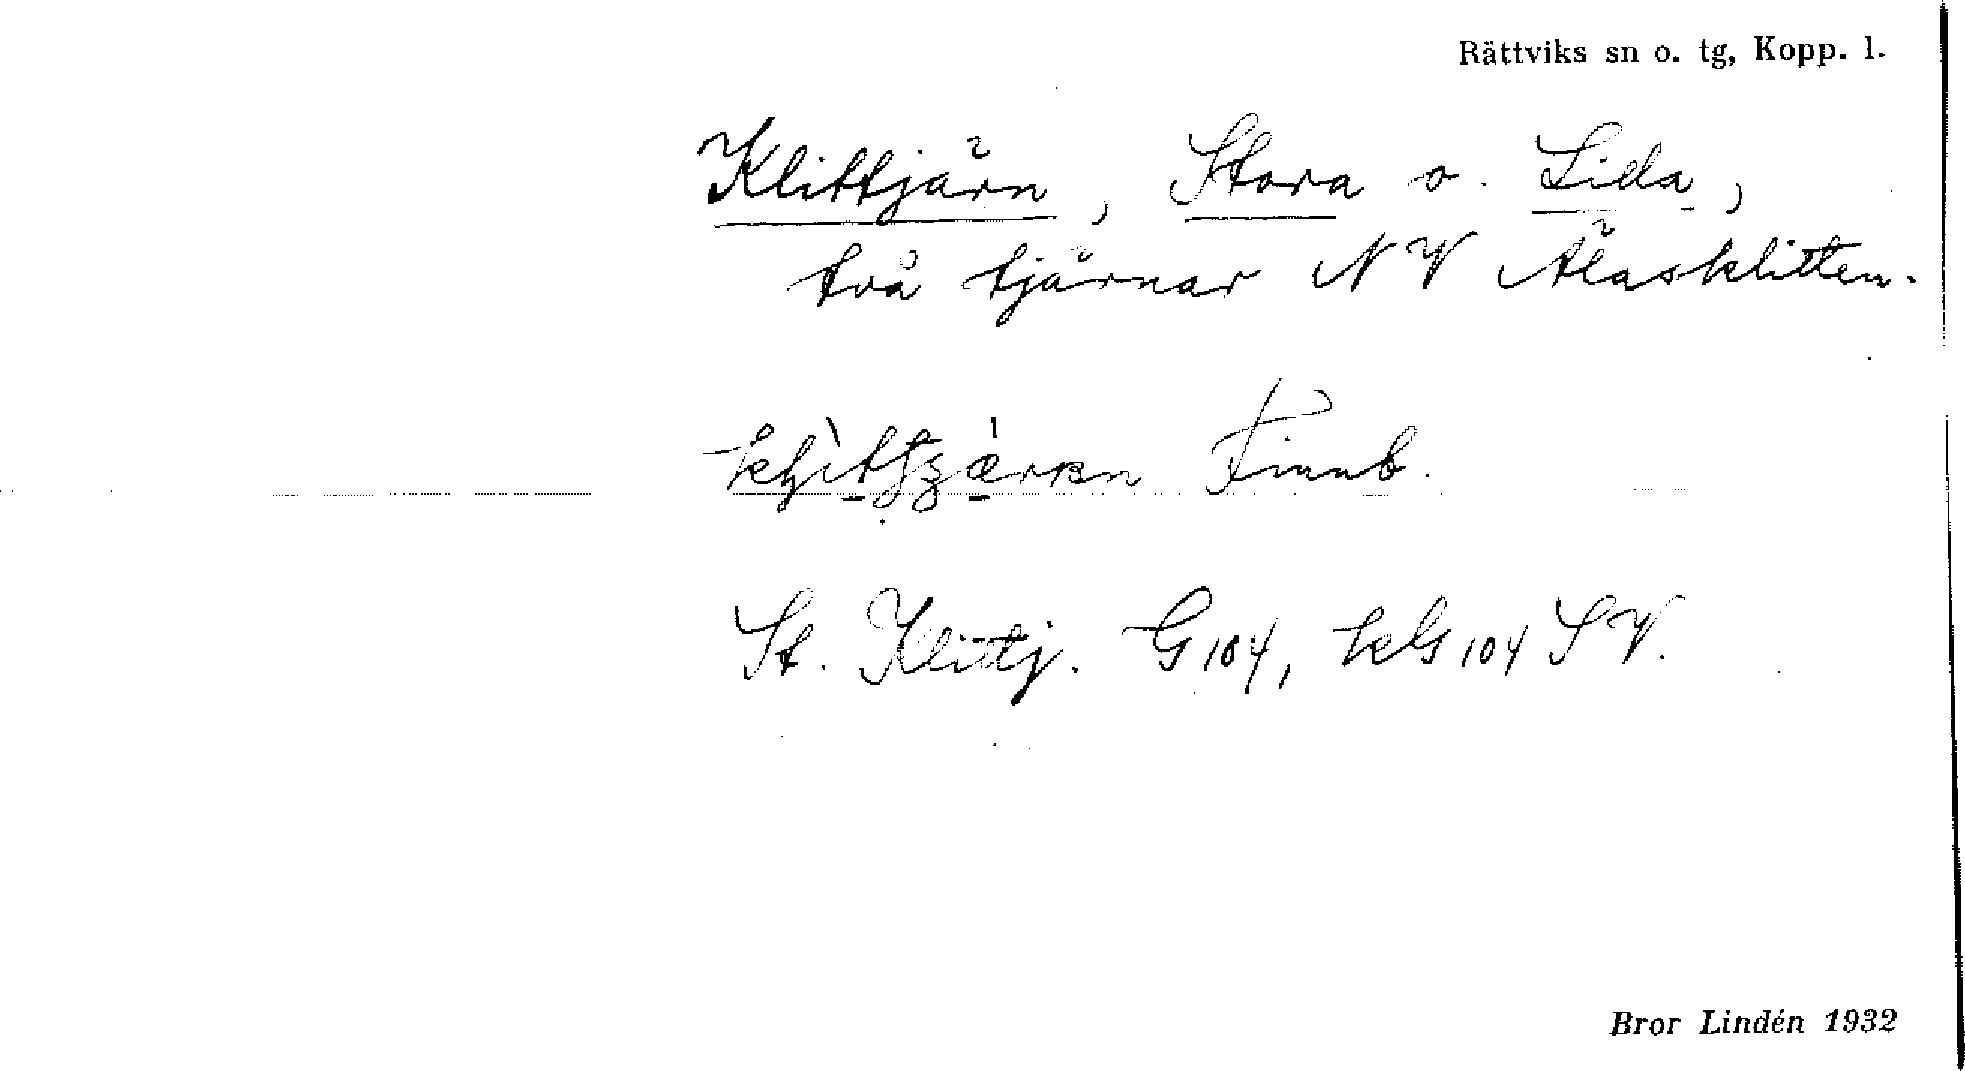 Rättviks sn o. tg, Kopp. l.
Klittjärn, Stora o. Lilla,
två tjärnar NV Älasklitten.
Finnb.
St. Klittj. G 104, G 104 SV.
Bror Lindén 1932